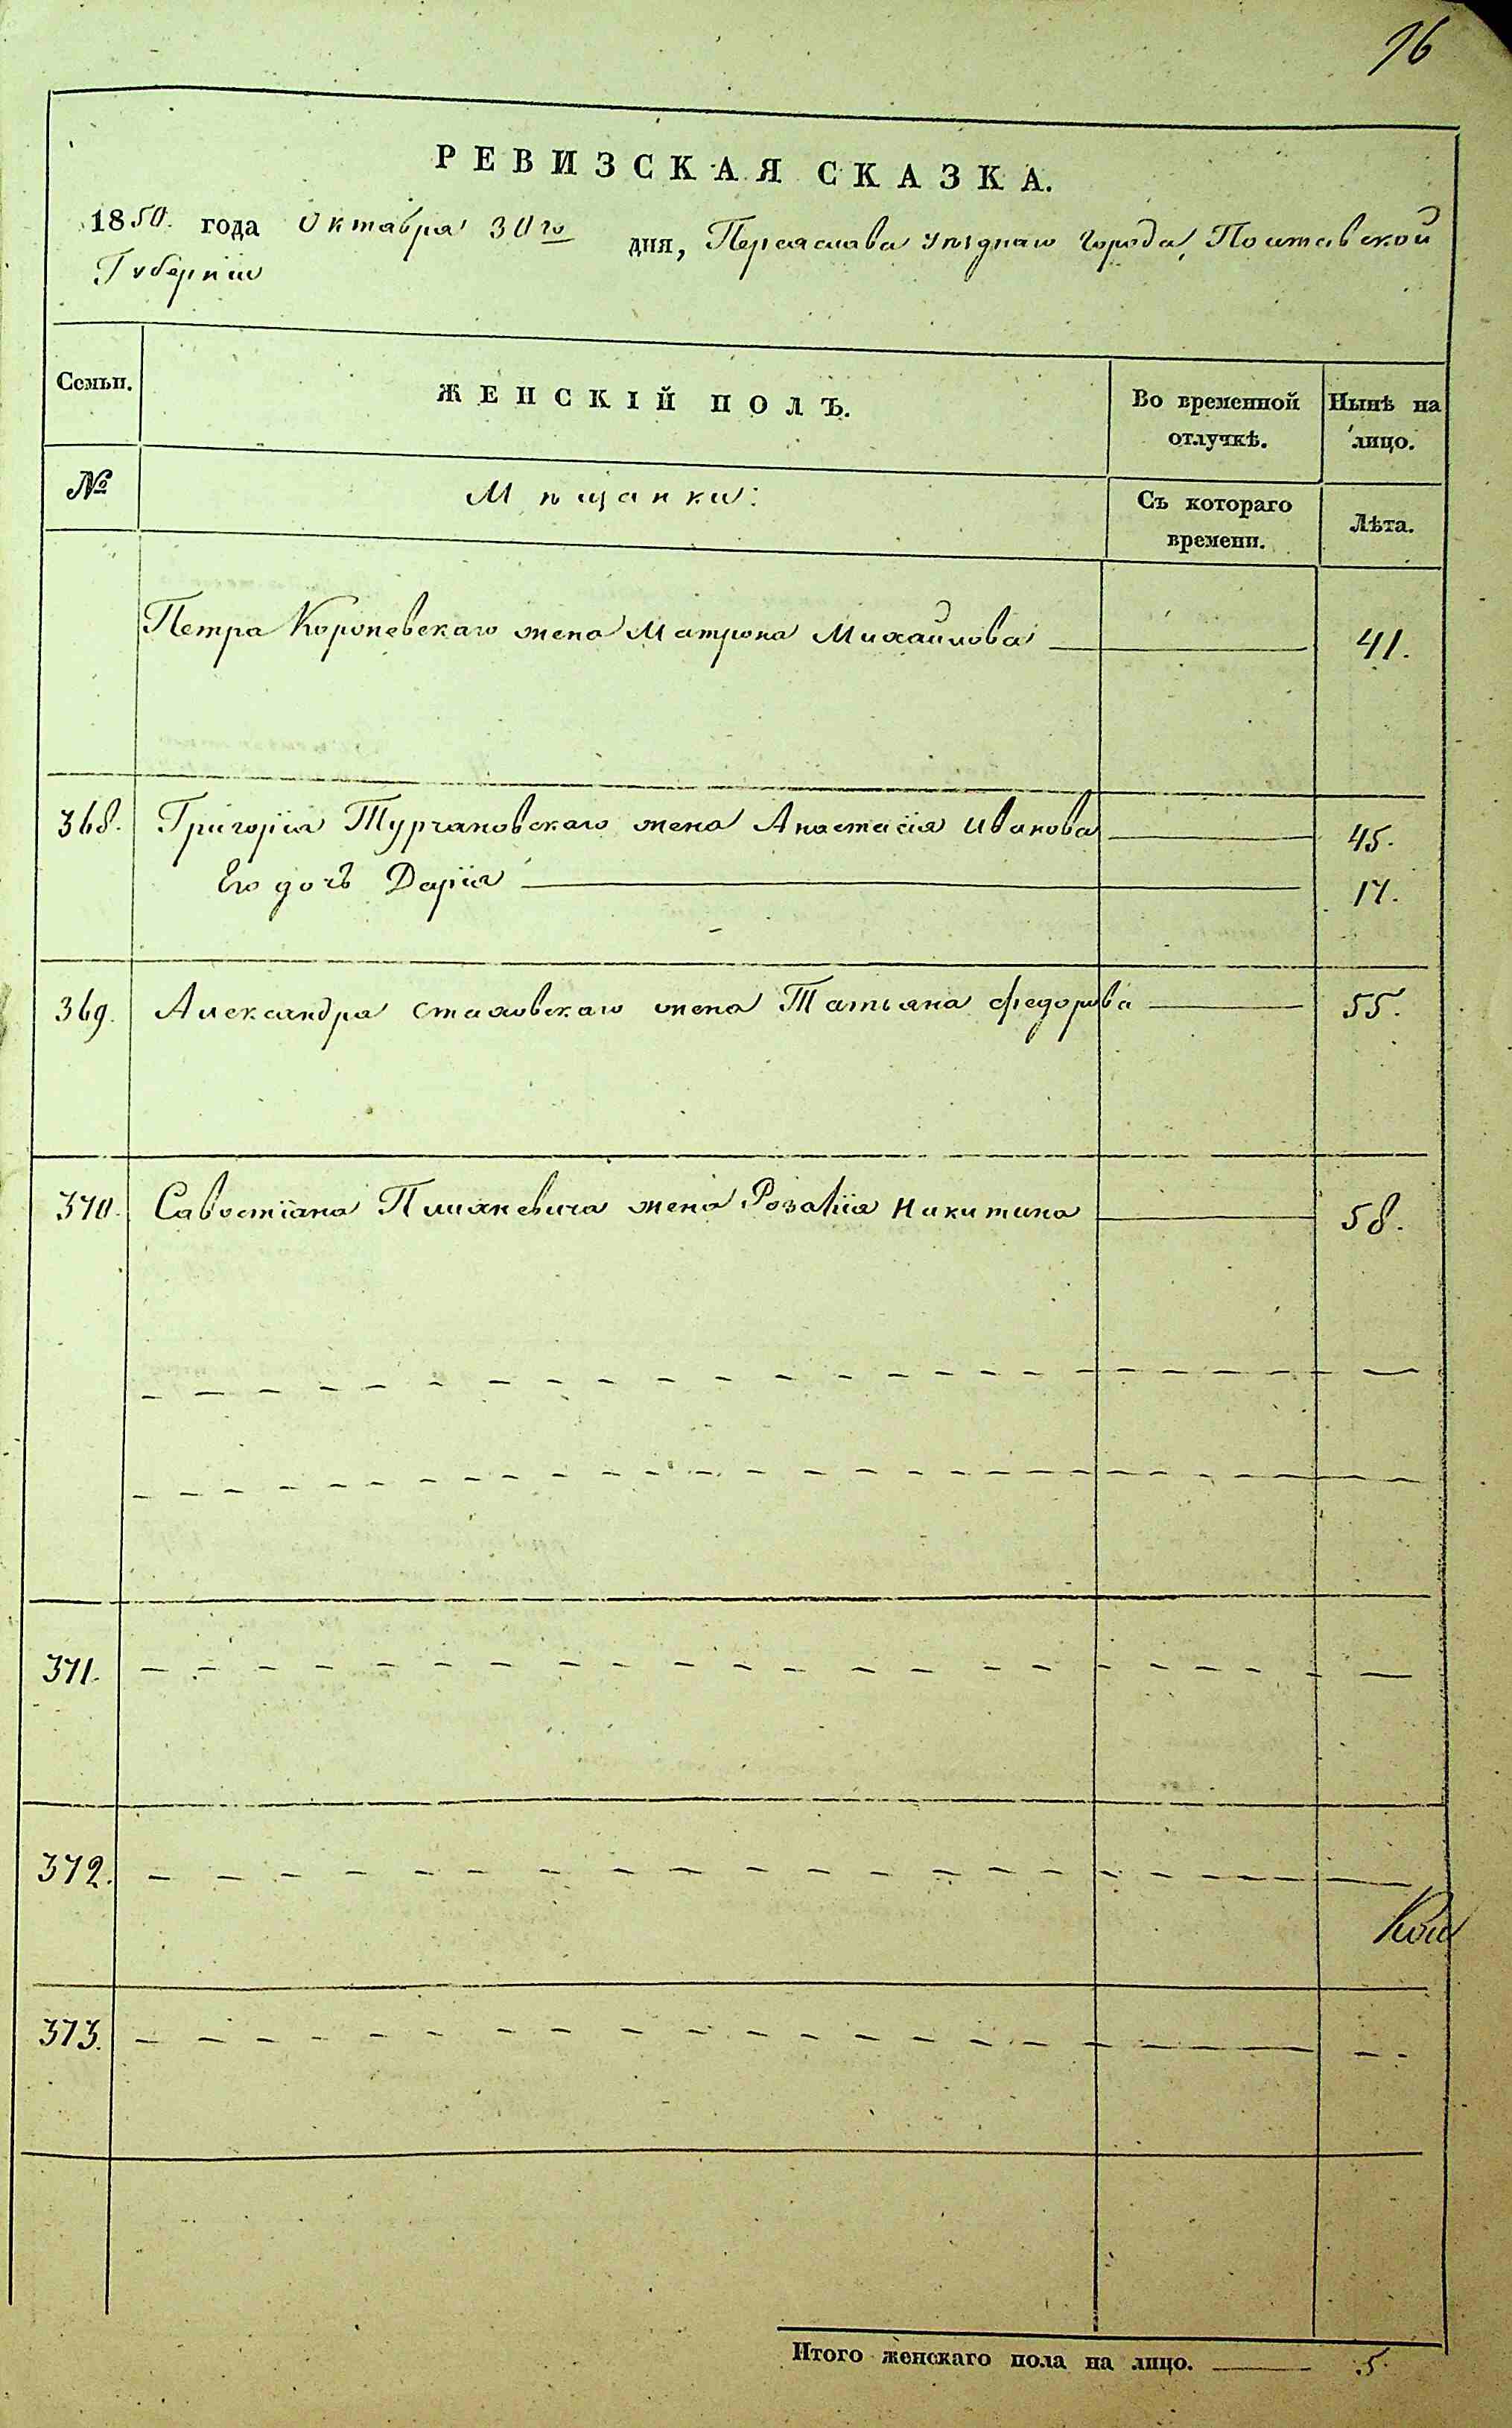 96
РЕВИЗСКАЯ СКАЗКА.
1850. года Октября 30го дня, Переяслава уѣзднаго города, Полтавской
Губерніи
Семьи. ЖЕНСКІЙ ПОЛЪ. Во временной отлучкѣ. Нынѣ на лицо.
№ Мѣщанки: Съ котораго времени. Лѣта.
Петра Короневскаго жена Матрона Михайлова 41.
368. Григорія Турчановскаго жена Анастасія Иванова 45.
Его дочь Дарія 17.
369. Александра Стаховскаго жена Татьяна Федорова 55.
370. Савостіана жена Розалія Никитина 58.
371.
372.
373.
Итого женскаго пола на лицо. 5.